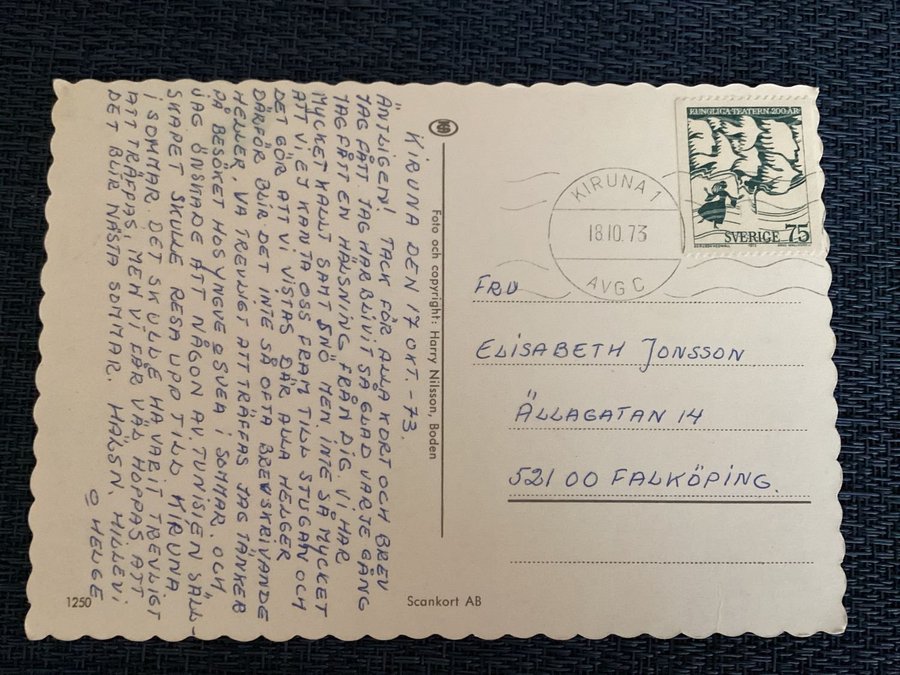 KIRUNA DEN 17 OKT. -73.
ÄNTLIGEN! TACK FÖR ALLA KORT OCH BREV
JAG FÅTT. JAG HAR BLIVIT SÅ GLAD VARTE GÅNG
JAG FÅTT EN HÄLSNING FRÅN DIG. VI HAR
MYCKET KALLT SAMT SNÖ MEN INTE SÅ MYCKET
ATT VI EJ KAN TA OSS FRAM TILL STUGAN OCH
DET GÖR ATT VI VISTAS DÄR ALLA HELGER
DÄRFÖR BLIR DET INTE SÅ OFTA BREVSKRIVANDE
HELLER. VA TREVLIGT ATT TRÄFFAS JAG TÄNKER
PÅ BESÖKET HOS YNGVE O SVEA I SOMMAR. OCH
JAG ÖNSKADE ATT NÅGON AV TUNISIEN SÄLL-
SKAPET SKULLE RESA UPP TILL KIRUNA
I SOMMAR. DET SKULLE HA VARIT TREVLIGT
ATT TRÄFFAS, MEN VI FÅR VÄL HOPPAS ATT
DET BLIR NÄSTA SOMMAR. HÄLSN. HILLEVI
O HELGE
Foto och copyright: Harry Nilsson, Boden
1250
Scankort AB
KUNGLIGA TEATERN 200 ÅR
SVERIGE 75
KIRUNA 1
18.10.73
AVG C
FRU
ELISABETH JONSSON
ÄLLAGATAN 14
521 00 FALKÖPING.